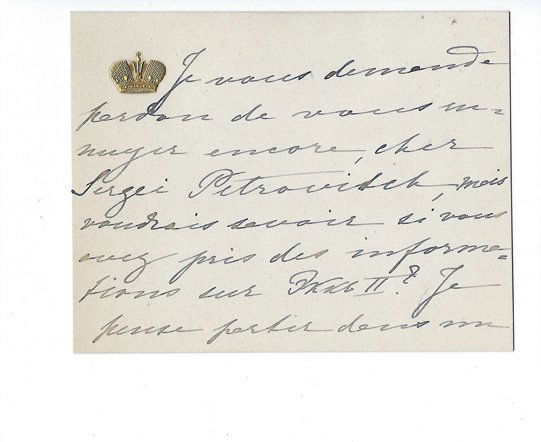 Je vous demande
perdon de vous en-
nuyer encore, cher
Sergei Petrovitsch, mais
voudrais savoir si vous
avez pris des informa-
tions sur II? Je
pense partir dans un